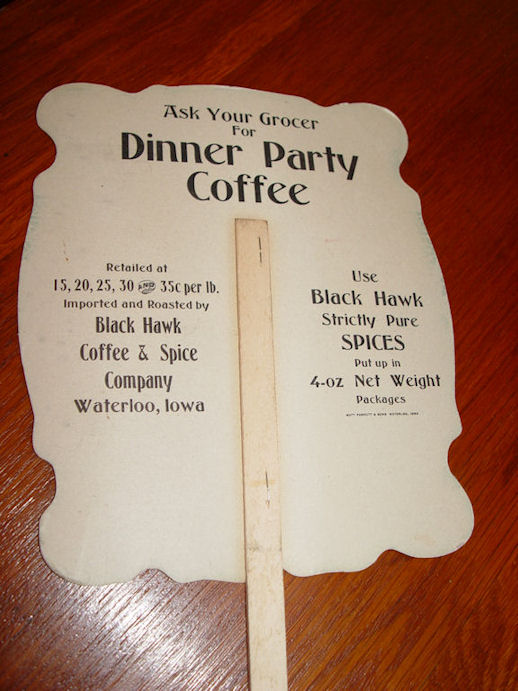 Ask Your Grocer
For
Dinner Party
Coffee
Retailed at
15, 20, 25, 30 AND 35c per lb.
Imported and Roasted by
Black Hawk
Coffee & Spice
Company
Waterloo, Iowa
Use
Black Hawk
Strictly Pure
SPICES
Put up in
4-oz Net Weight
Packages
WATERLOO, IOWA